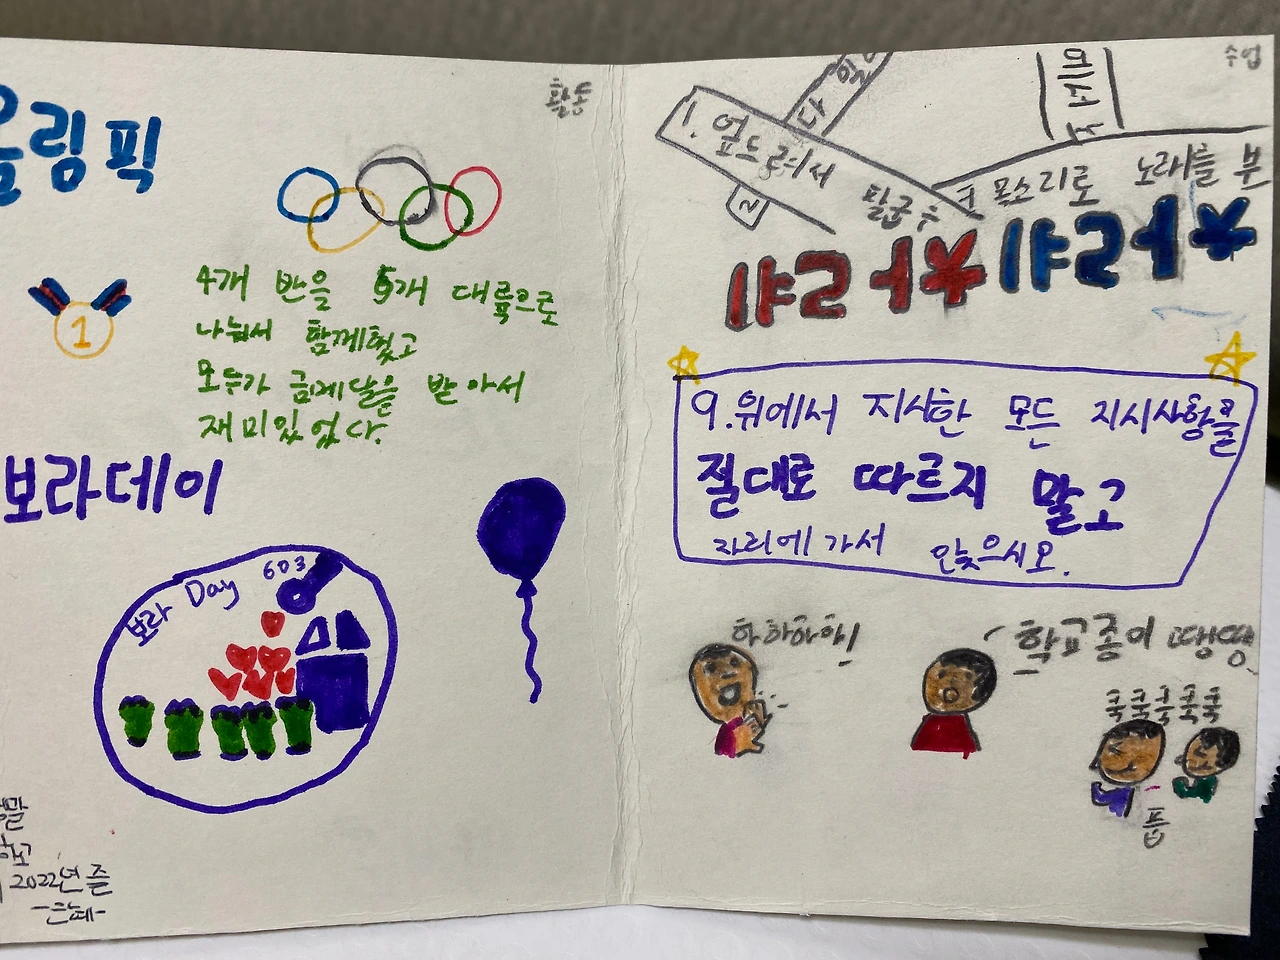 활동
올림픽
1
4개 반을 5개 대륙으로
나눠서 함께했고
모두가 금메달을 받아서
재미있었다.
보라데이
보라 Day 603
2022년
수업
1. 엎드려서
2
큰 목소리로 노래를 부
9. 위에서 지시한 모든 지시사항을
절대로 따르지 말고
자리에 가서 앉으시오.
하하하하!
학교종이 땡땡
쿡쿡쿡쿡쿡
풉